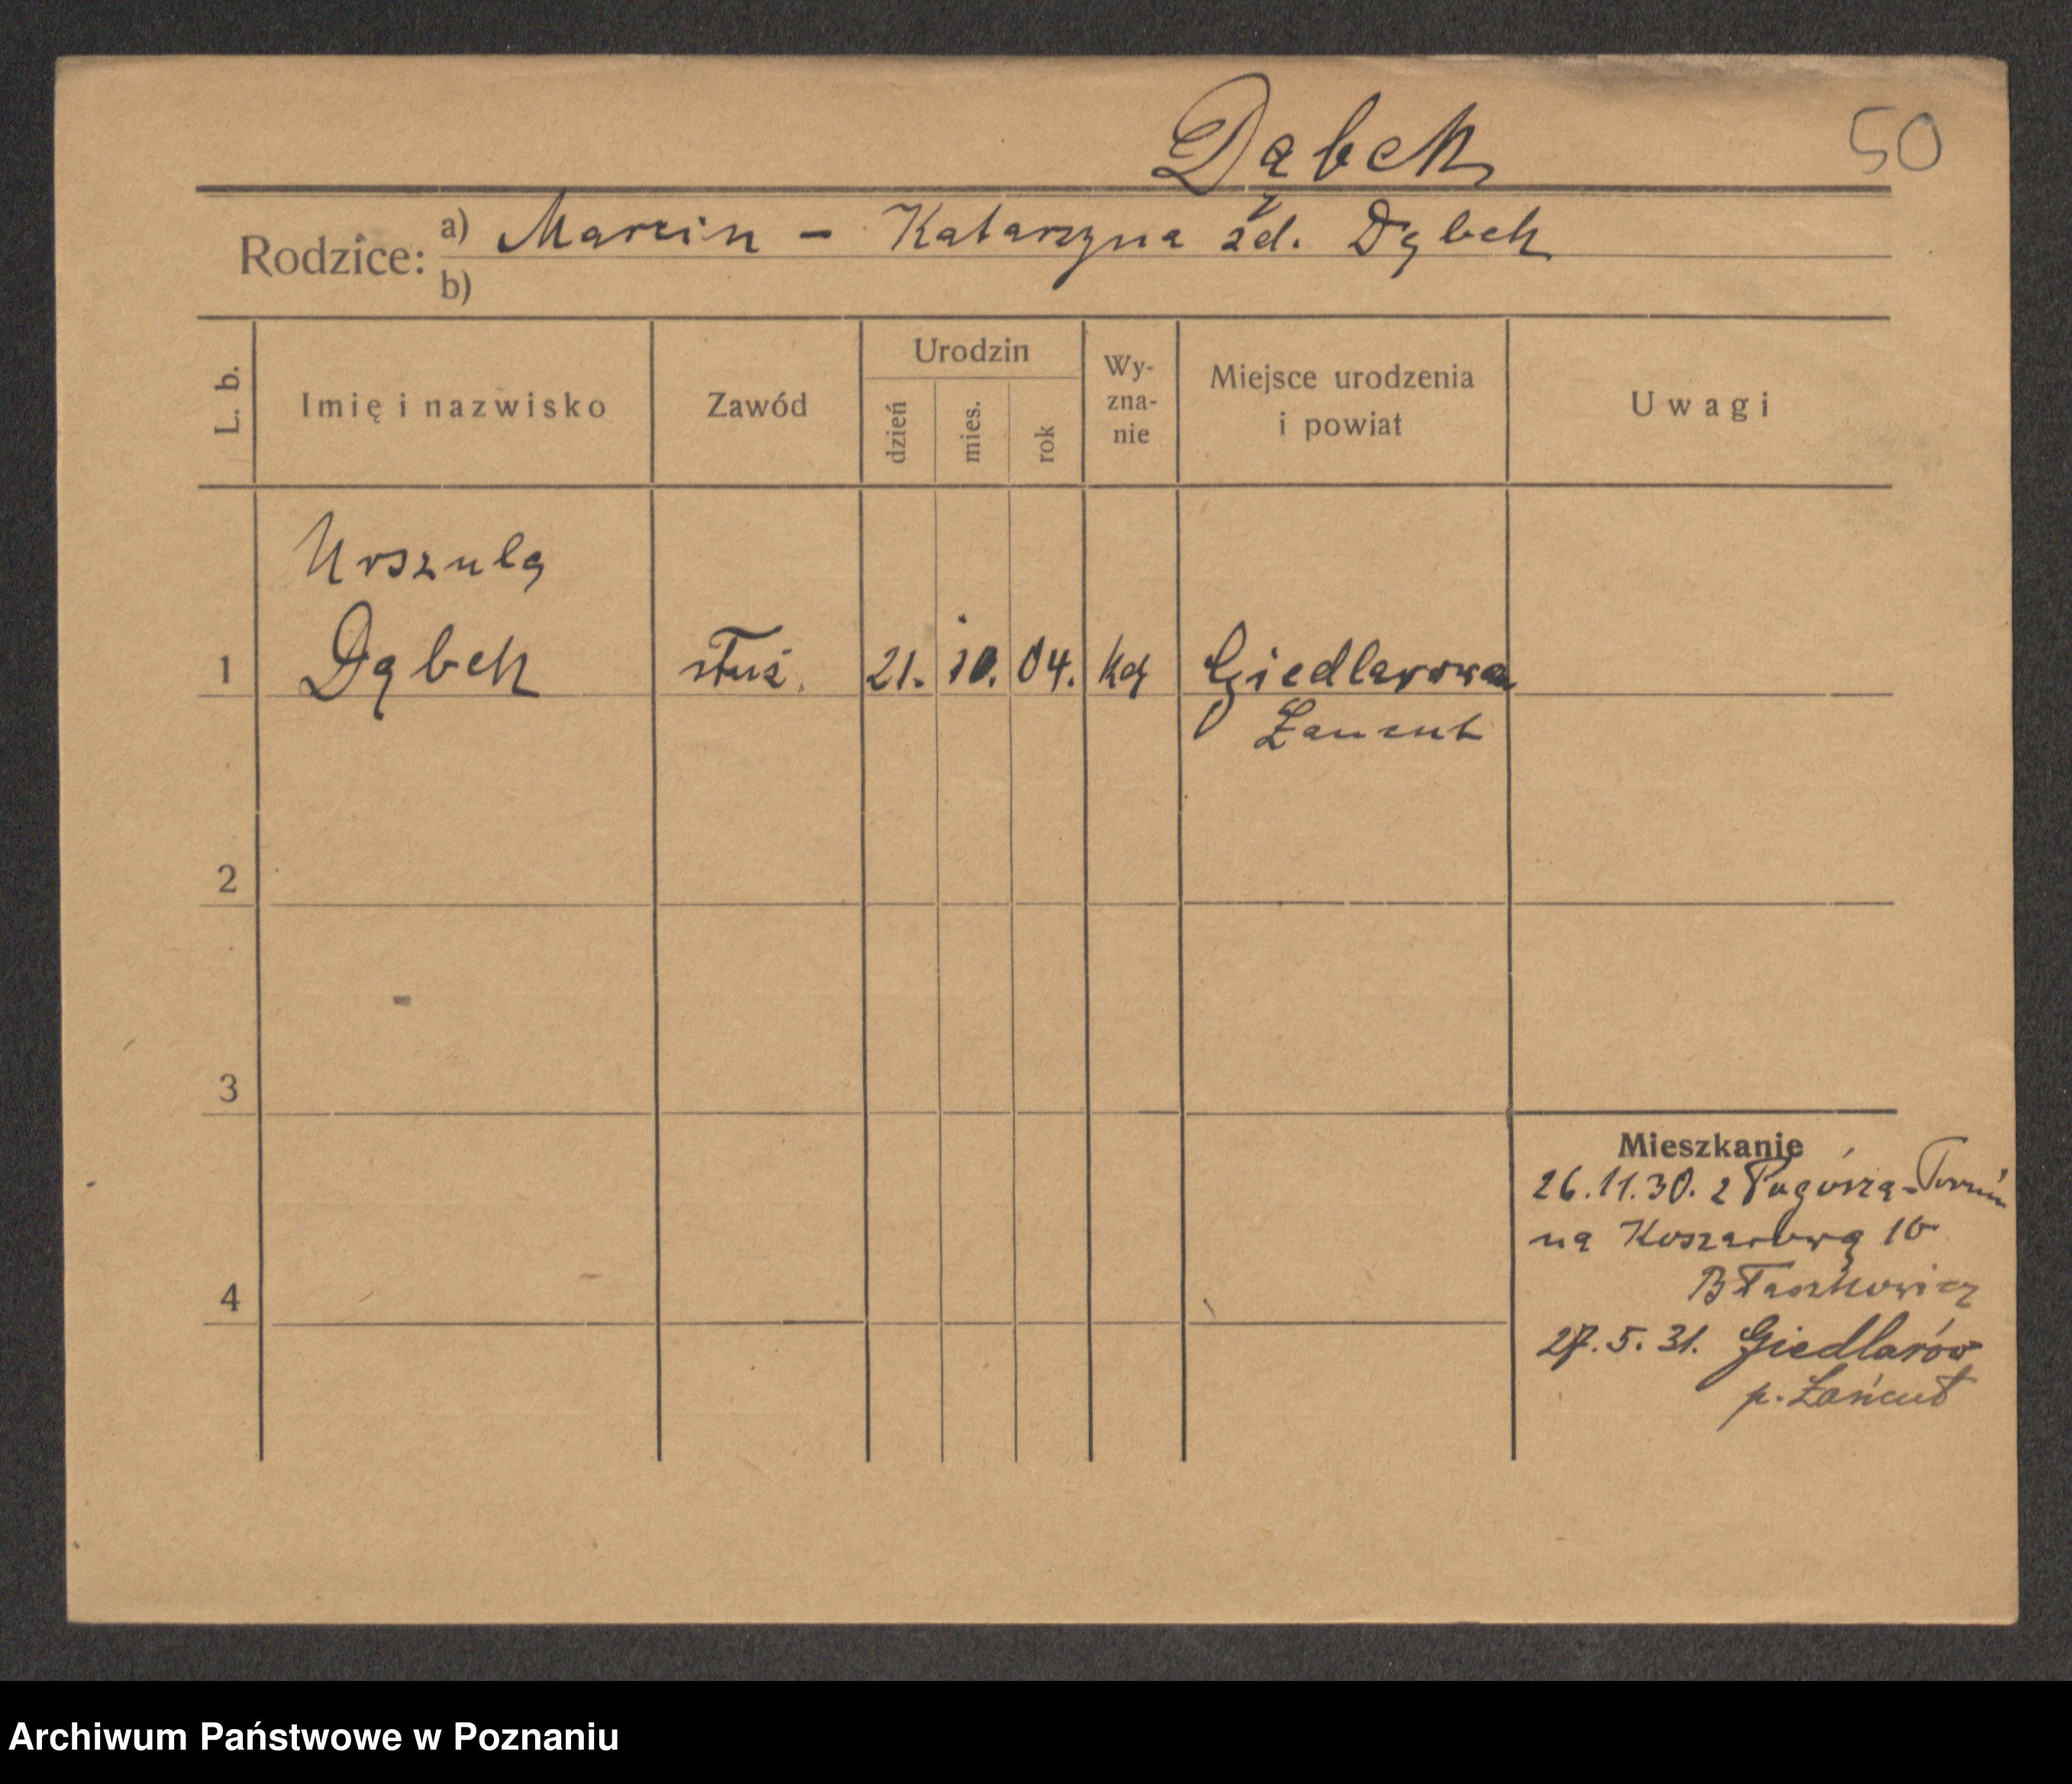 Dąbek 50
Rodzice: a) Marcin – Katarzyna zd. Dąbek
b)
L. b. Imię i nazwisko Zawód Urodzin Wy- Miejsce urodzenia Uwagi
dzień mies. rok zna- i powiat
nie
Urszula
1 Dąbek służ. 21. 10. 04. kat Giedlarowa
Łancut
2
3
Mieszkanie
26.11.30. z Pogórza-Toruń
na Koszarową 16
4 Błaszkowicz
27.5.31. Giedlarów
p. Łańcut
Archiwum Państwowe w Poznaniu